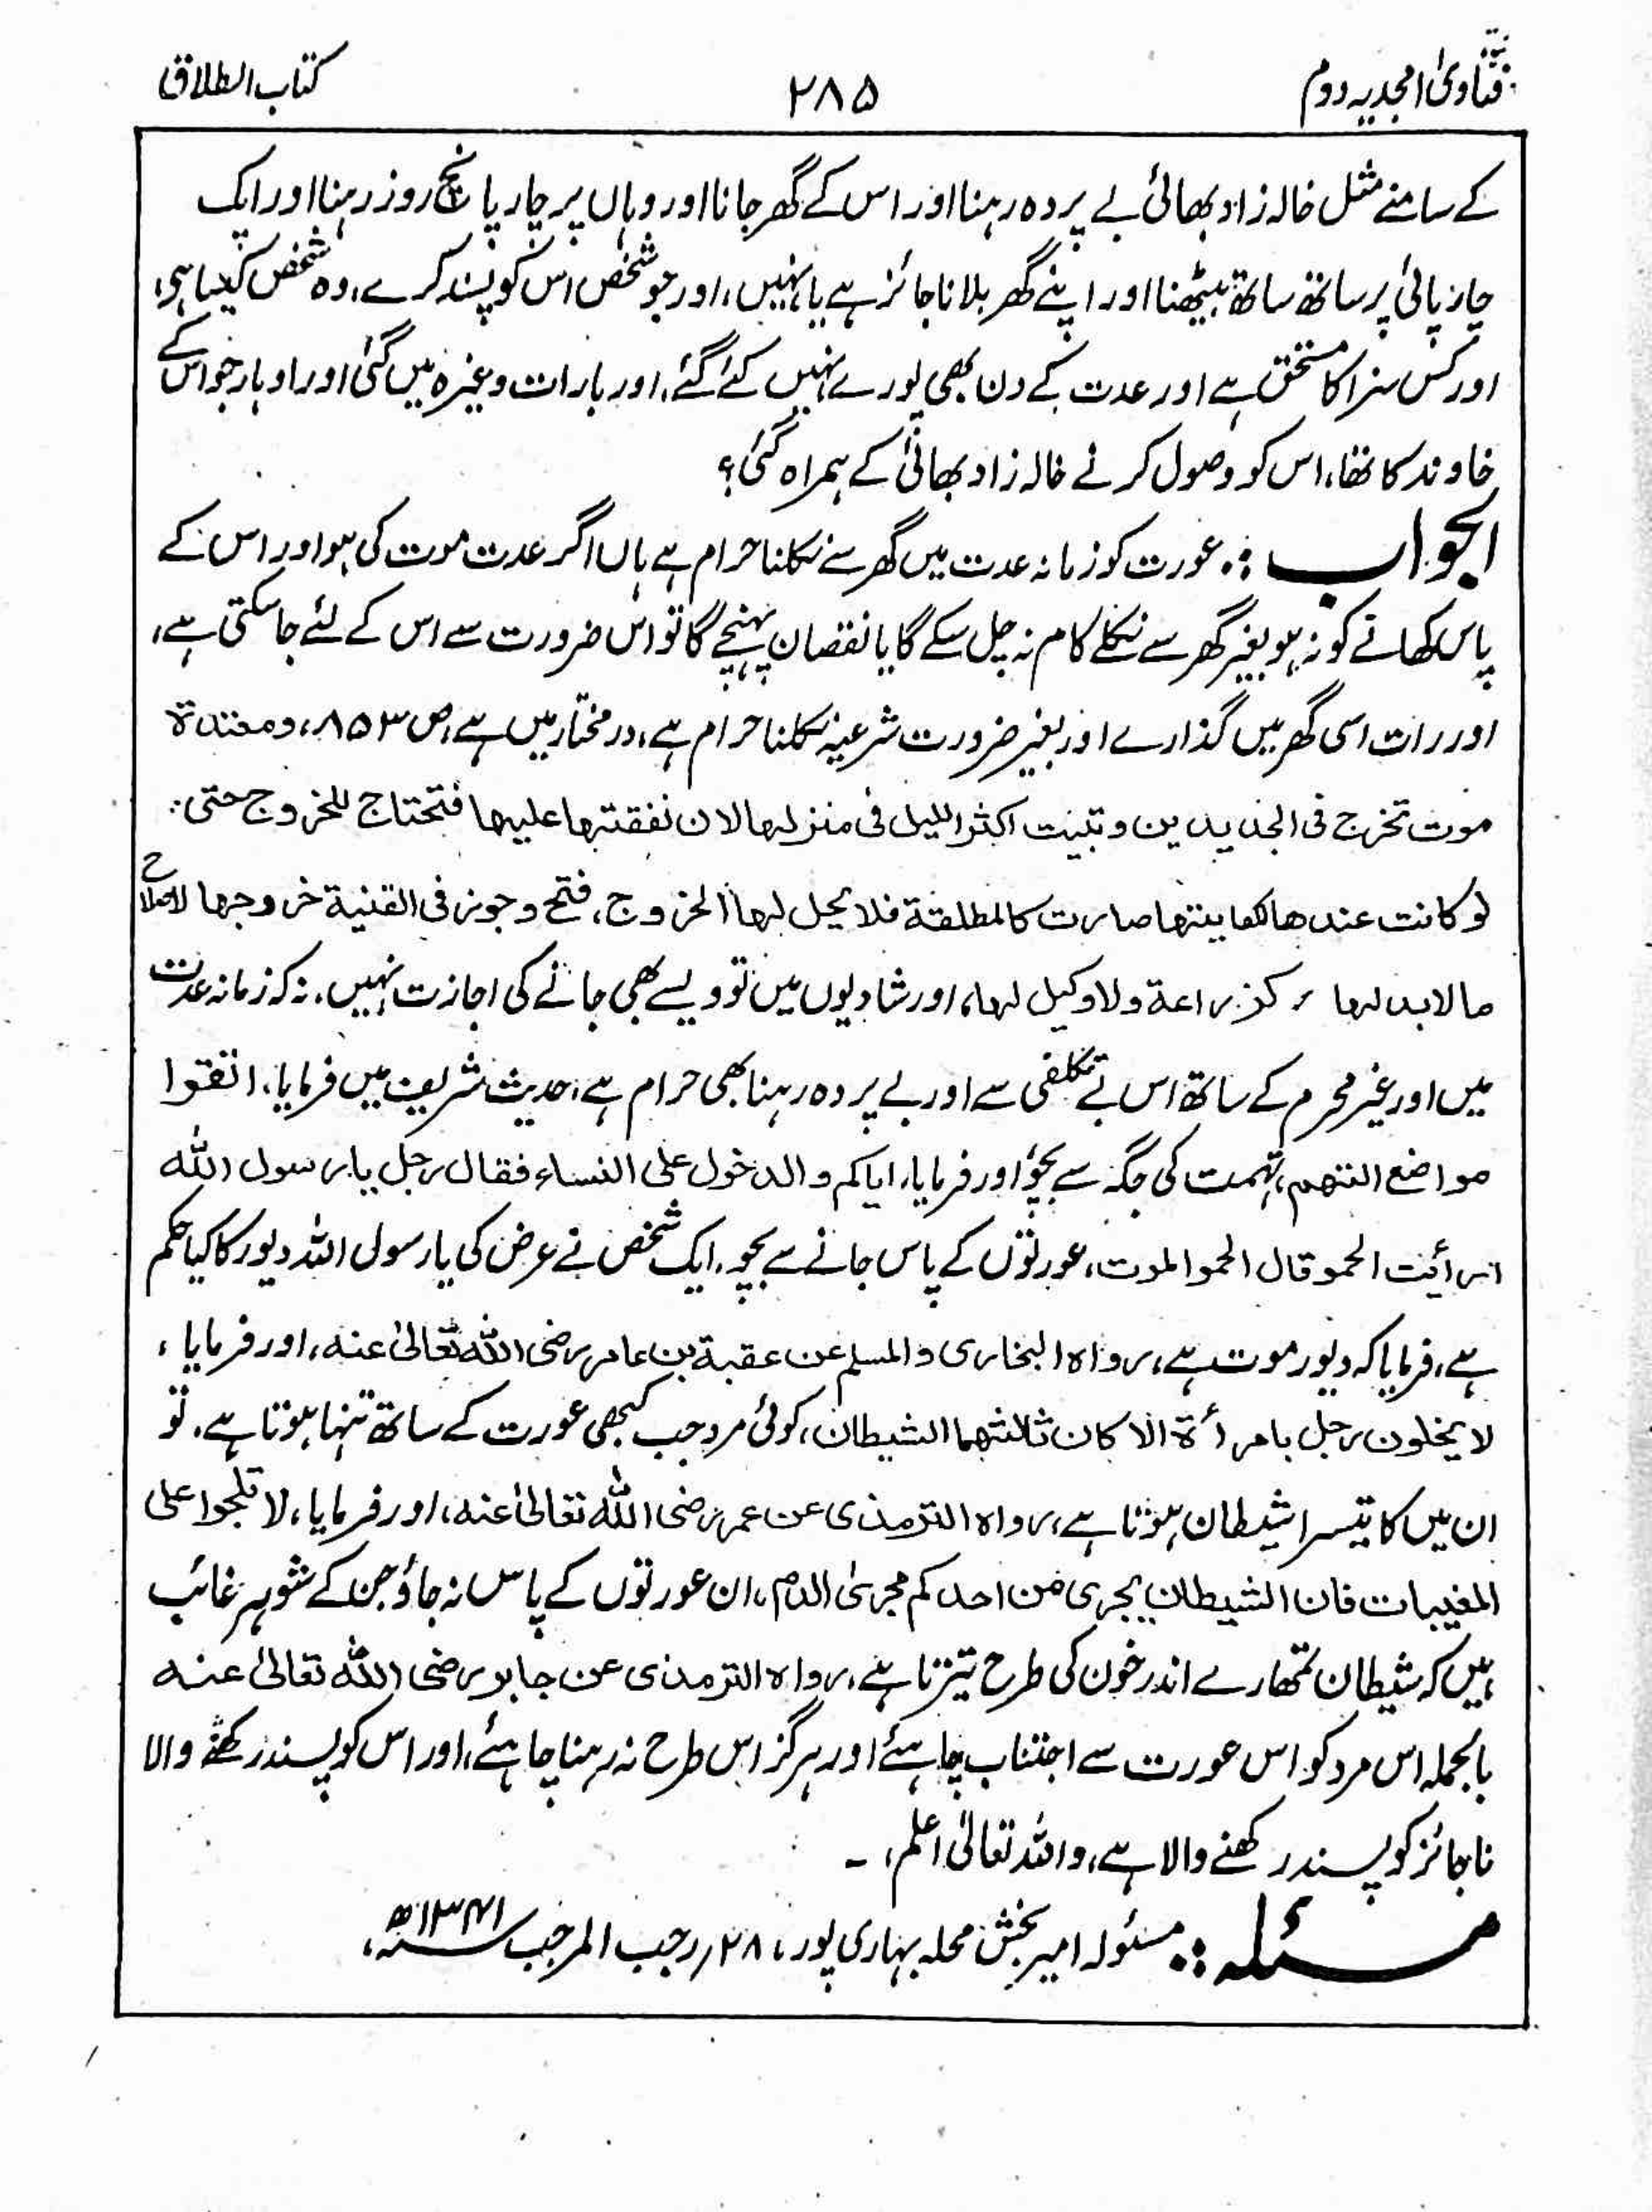 فتاویٰ امجدیہ دوم ۲۸۵ کتاب الطلاق
کے سامنے مثل خالہ زاد بھائی بے پردہ رہنا اور اس کے گھر جانا اور وہاں پر چار پانچ روز رہنا اور ایک
چارپائی پر ساتھ ساتھ بیٹھنا اور اپنے گھر بلانا جائز ہے یا نہیں، اور جو شخص اس کو پسند کرے، وہ شخص کیسا ہے،
اور کس سزا کا مستحق ہے اور عدت کے دن بھی پورے نہیں کئے گئے، اور بارات وغیرہ میں گئی اور اوہار جو اس کے
خاوند کا تھا، اس کو وصول کرنے خالہ زاد بھائی کے ہمراہ گئی؟
الجواب :۔ عورت کو زمانہ عدت میں گھر سے نکلنا حرام ہے ہاں اگر عدت موت کی ہو اور اس کے
پاس کھانے کو نہ ہو بغیر گھر سے نکلے کام نہ چل سکے گا یا نقصان پہنچے گا تو اس ضرورت سے اس کے لئے جا سکتی ہے،
اور رات اسی گھر میں گذارے اور بغیر ضرورت شرعیہ نکلنا حرام ہے، در مختار میں ہے ص ۸۵۳، ومعتدۃ
موت تخرج فی الجدیدین وتبیت اکثر اللیل فی منزلہا لان نفقتہا علیہا فتحتاج للخروج حتی
لو کانت عندھا کفایتہا صارت کالمطلقۃ فلا یحل لہا الخروج، فتح وجوز فی القنیۃ خروجہا لاصلاح
مالابد لہا کزراعۃ ولا وکیل لہا، اور شادیوں میں تو ویسے بھی جانے کی اجازت نہیں، نہ کہ زمانہ عدت
میں اور غیر محرم کے ساتھ اس بے تکلفی سے اور بے پردہ رہنا بھی حرام ہے، حدیث شریف میں فرمایا، اتقوا
مواضع التھم، تہمت کی جگہ سے بچو، اور فرمایا، ایاکم والدخول علی النساء فقال رجل یارسول اللّٰہ
ارأیت الحمو قال الحمو الموت، عورتوں کے پاس جانے سے بچو، ایک شخص نے عرض کی یارسول اللہ دیور کا کیا حکم
ہے، فرمایا کہ دیور موت ہے، رواہ البخاری والمسلم عن عقبۃ بن عامر رضی اللّٰہ تعالیٰ عنہ، اور فرمایا،
لا یخلون رجل بامرأۃ الا کان ثالثہما الشیطان، کوئی مرد جب کبھی عورت کے ساتھ تنہا ہوتا ہے، تو
ان میں کا تیسرا شیطان ہوتا ہے، رواہ الترمذی عن عمر رضی اللّٰہ تعالیٰ عنہ، اور فرمایا، لا تلجوا علی
المغیبات فان الشیطان یجری من احدکم مجری الدم، ان عورتوں کے پاس نہ جاؤ جن کے شوہر غائب
ہیں کہ شیطان تمھارے اندر خون کی طرح تیرتا ہے، رواہ الترمذی عن جابر رضی اللّٰہ تعالیٰ عنہ
بالجملہ اس مرد کو اس عورت سے اجتناب چاہئے اور ہرگز اس طرح نہ رہنا چاہئے، اور اس کو پسند رکھنے والا
ناجائز کو پسند رکھنے والا ہے، واللہ تعالیٰ اعلم، ۔
مسئلہ :۔ مسئولہ امیر بخش محلہ بہاری پور، ۲۸ رجب المرجب ۱۳۴۱ھ،